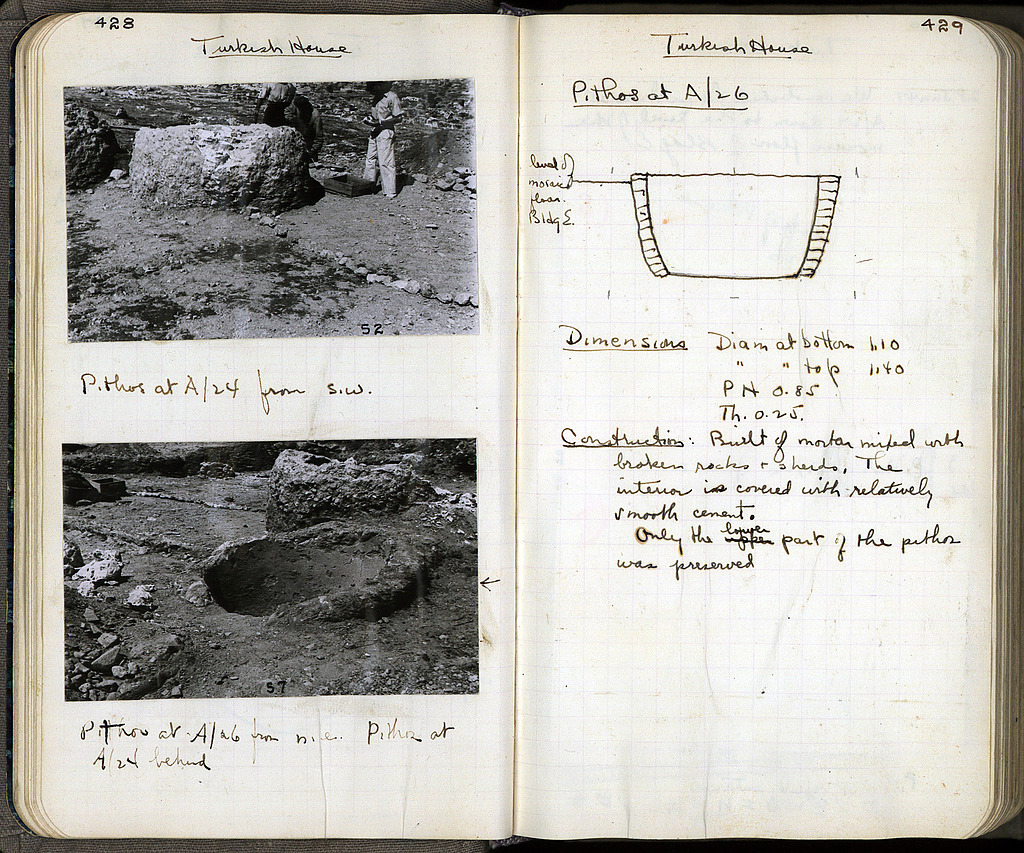 428
Turkish House
52
Pithos at A/24 from s.w.
57
Pithos at A/26 from n.e. Pithos at
A/24 behind
429
Turkish House
Pithos at A/26
level of
mosaic
floor
Bldg E.
Dimensions Diam at bottom 1.10
" " top 1.40
PH 0.85
Th. 0.25.
Construction: Built of mortar mixed with
broken rocks + sherds. The
interior is covered with relatively
smooth cement.
Only the upper lower part of the pithos
was preserved